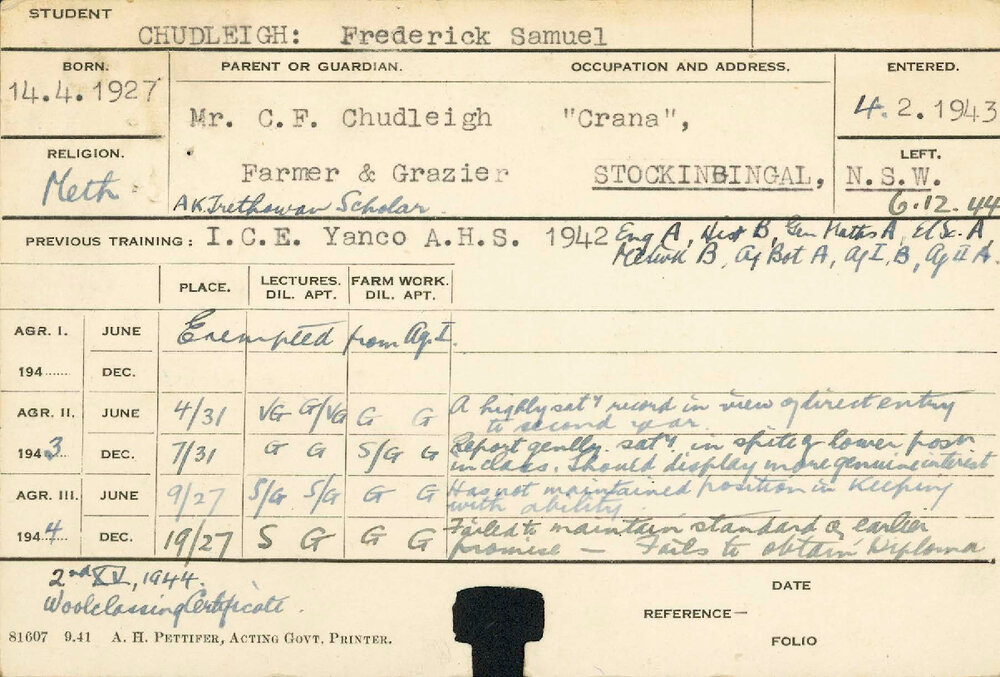 STUDENT
CHUDLEIGH: Frederick Samuel
BORN. PARENT OR GUARDIAN. OCCUPATION AND ADDRESS. ENTERED.
14.4.1927 Mr. C.F. Chudleigh "Crana", 4.2.1943
RELIGION. LEFT.
Meth Farmer & Grazier STOCKINBINGAL, N.S.W.
AK Trethowan Scholar. 6.12.44
PREVIOUS TRAINING: I.C.E. Yanco A.H.S. 1942 Eng A, Hist B, Gen Maths A, El Sc. A,
B, Ag Bot A, Ag I, B, Ag II A.
PLACE. LECTURES. FARM WORK.
DIL. APT. DIL. APT.
AGR. I. JUNE Exempted from Ag. I.
194...... DEC.
AGR. II. JUNE 4/31 VG G/VG G G A highly saty record in view of direct entry
to second year.
1943 DEC. 7/31 G G S/G G Report genlly. saty in spite of lower posn
in class. Should display more genuine interest
AGR. III. JUNE 9/27 S/G S/G G G Has not maintained position in keeping
with ability
1944 DEC. 19/27 S G G G Failed to maintain standard of earlier
promise — Fails to obtain Diploma
2nd XV, 1944.
Woolclassing Certificate.
DATE
REFERENCE—
FOLIO
81607 9.41 A. H. PETTIFER, ACTING GOVT. PRINTER.